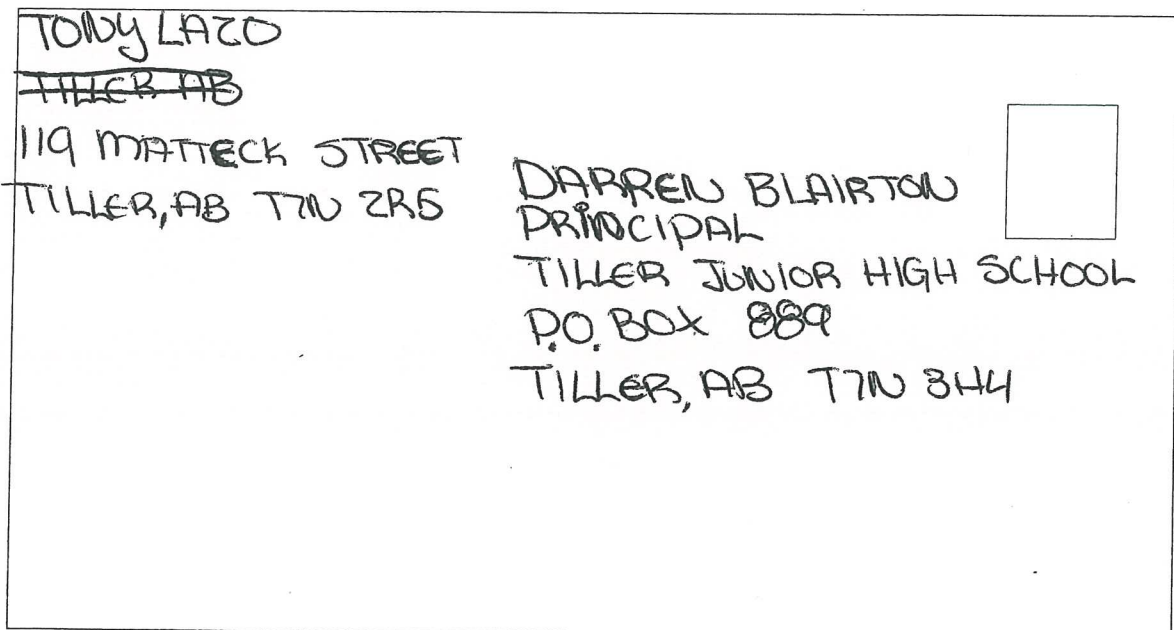 TONY LAZO
TILLER AB
119 MATTECK STREET
TILLER, AB T7N 2R5
DARREN BLAIRTON
PRINCIPAL
TILLER JUNIOR HIGH SCHOOL
P.O. BOX 889
TILLER, AB T7N 3H4